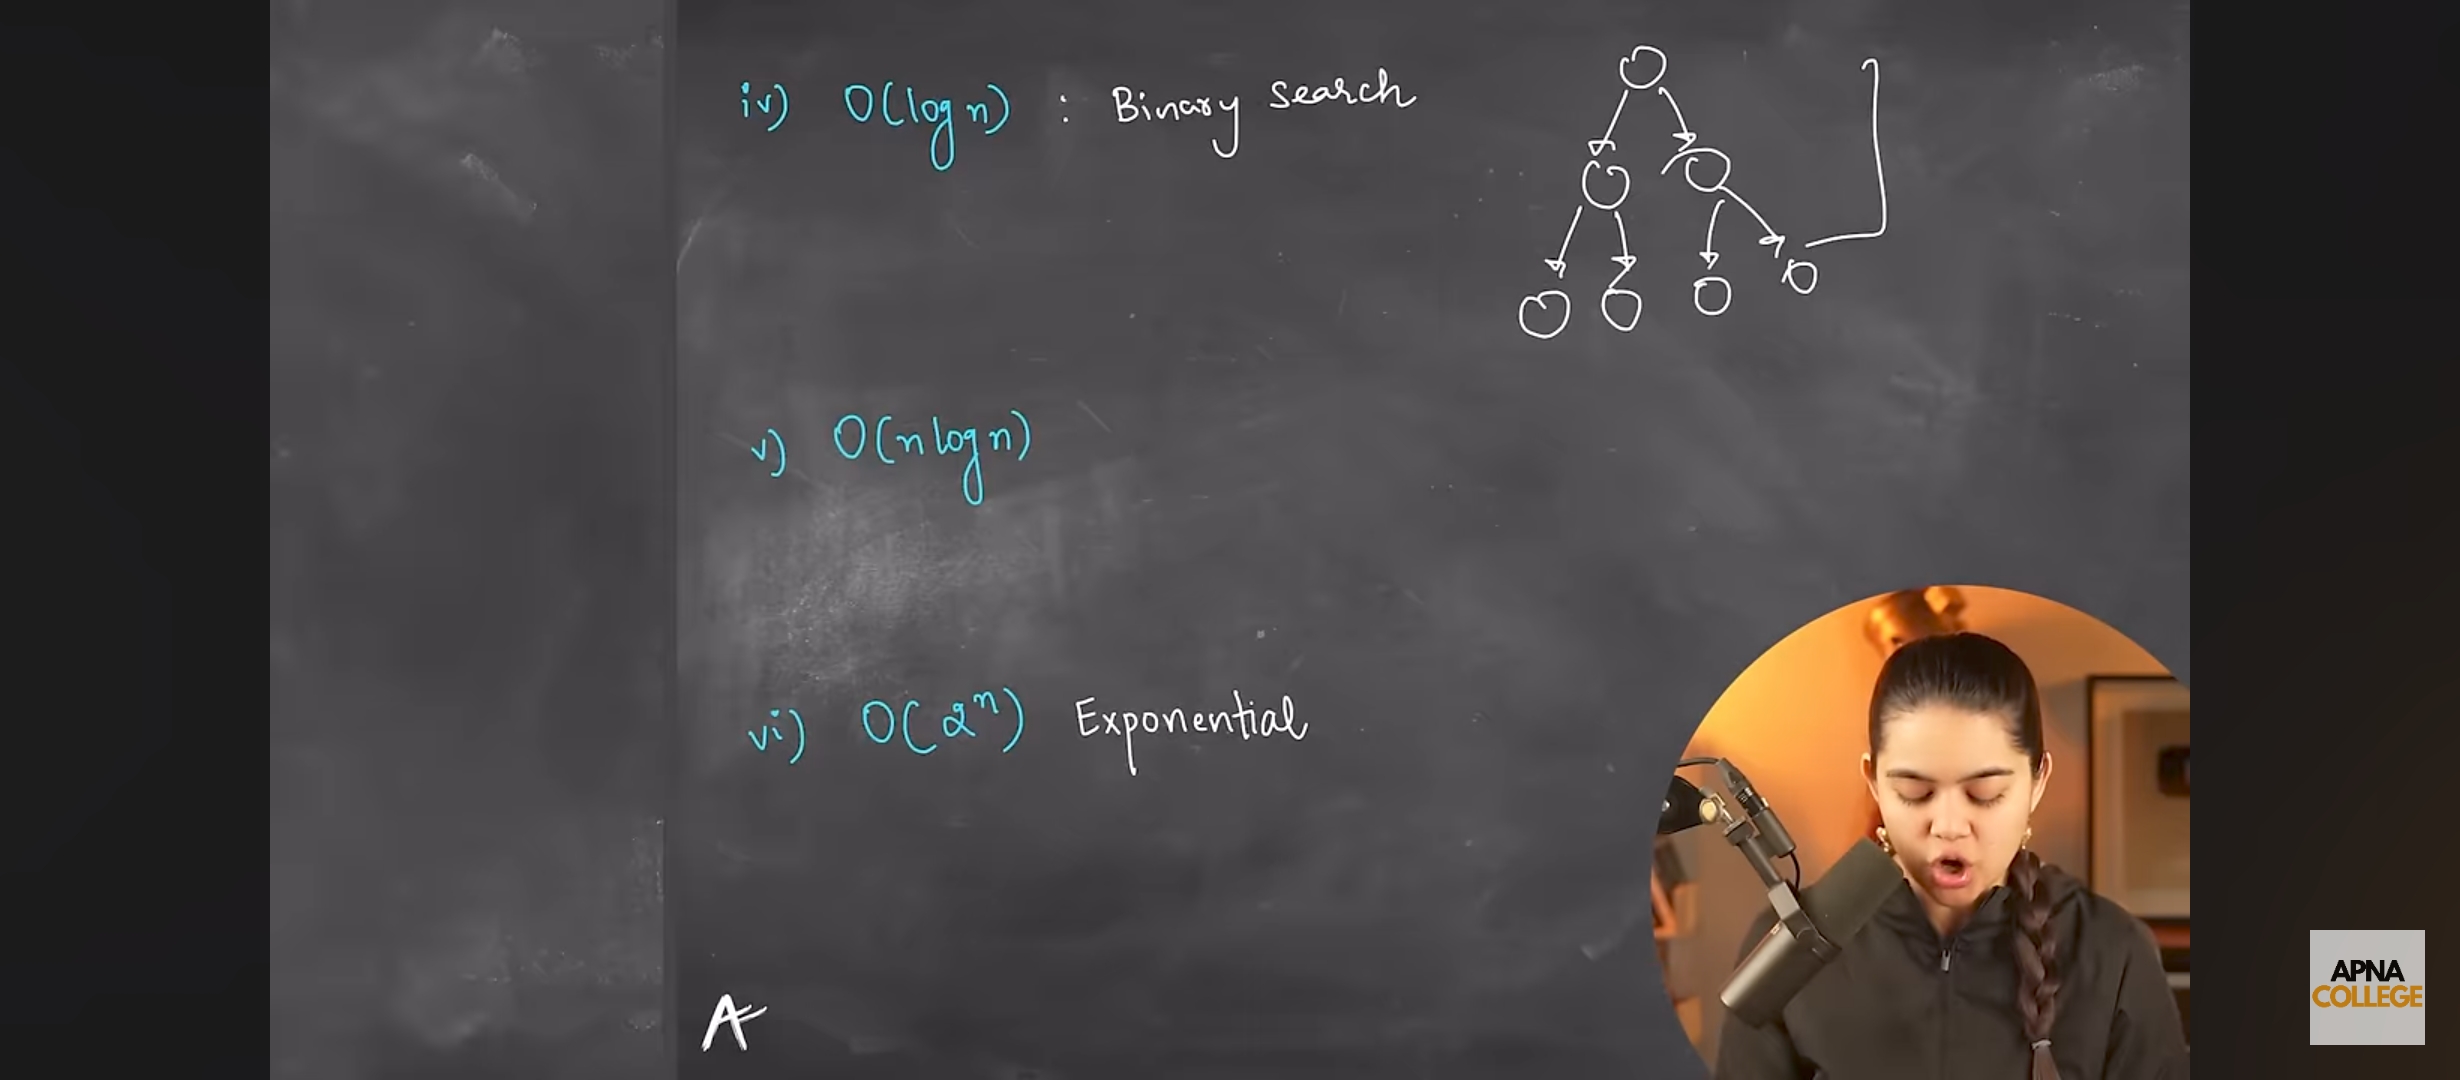 iv) O(log n) : Binary search
v) O(n log n)
vi) O(2ⁿ) Exponential
A
APNA
COLLEGE